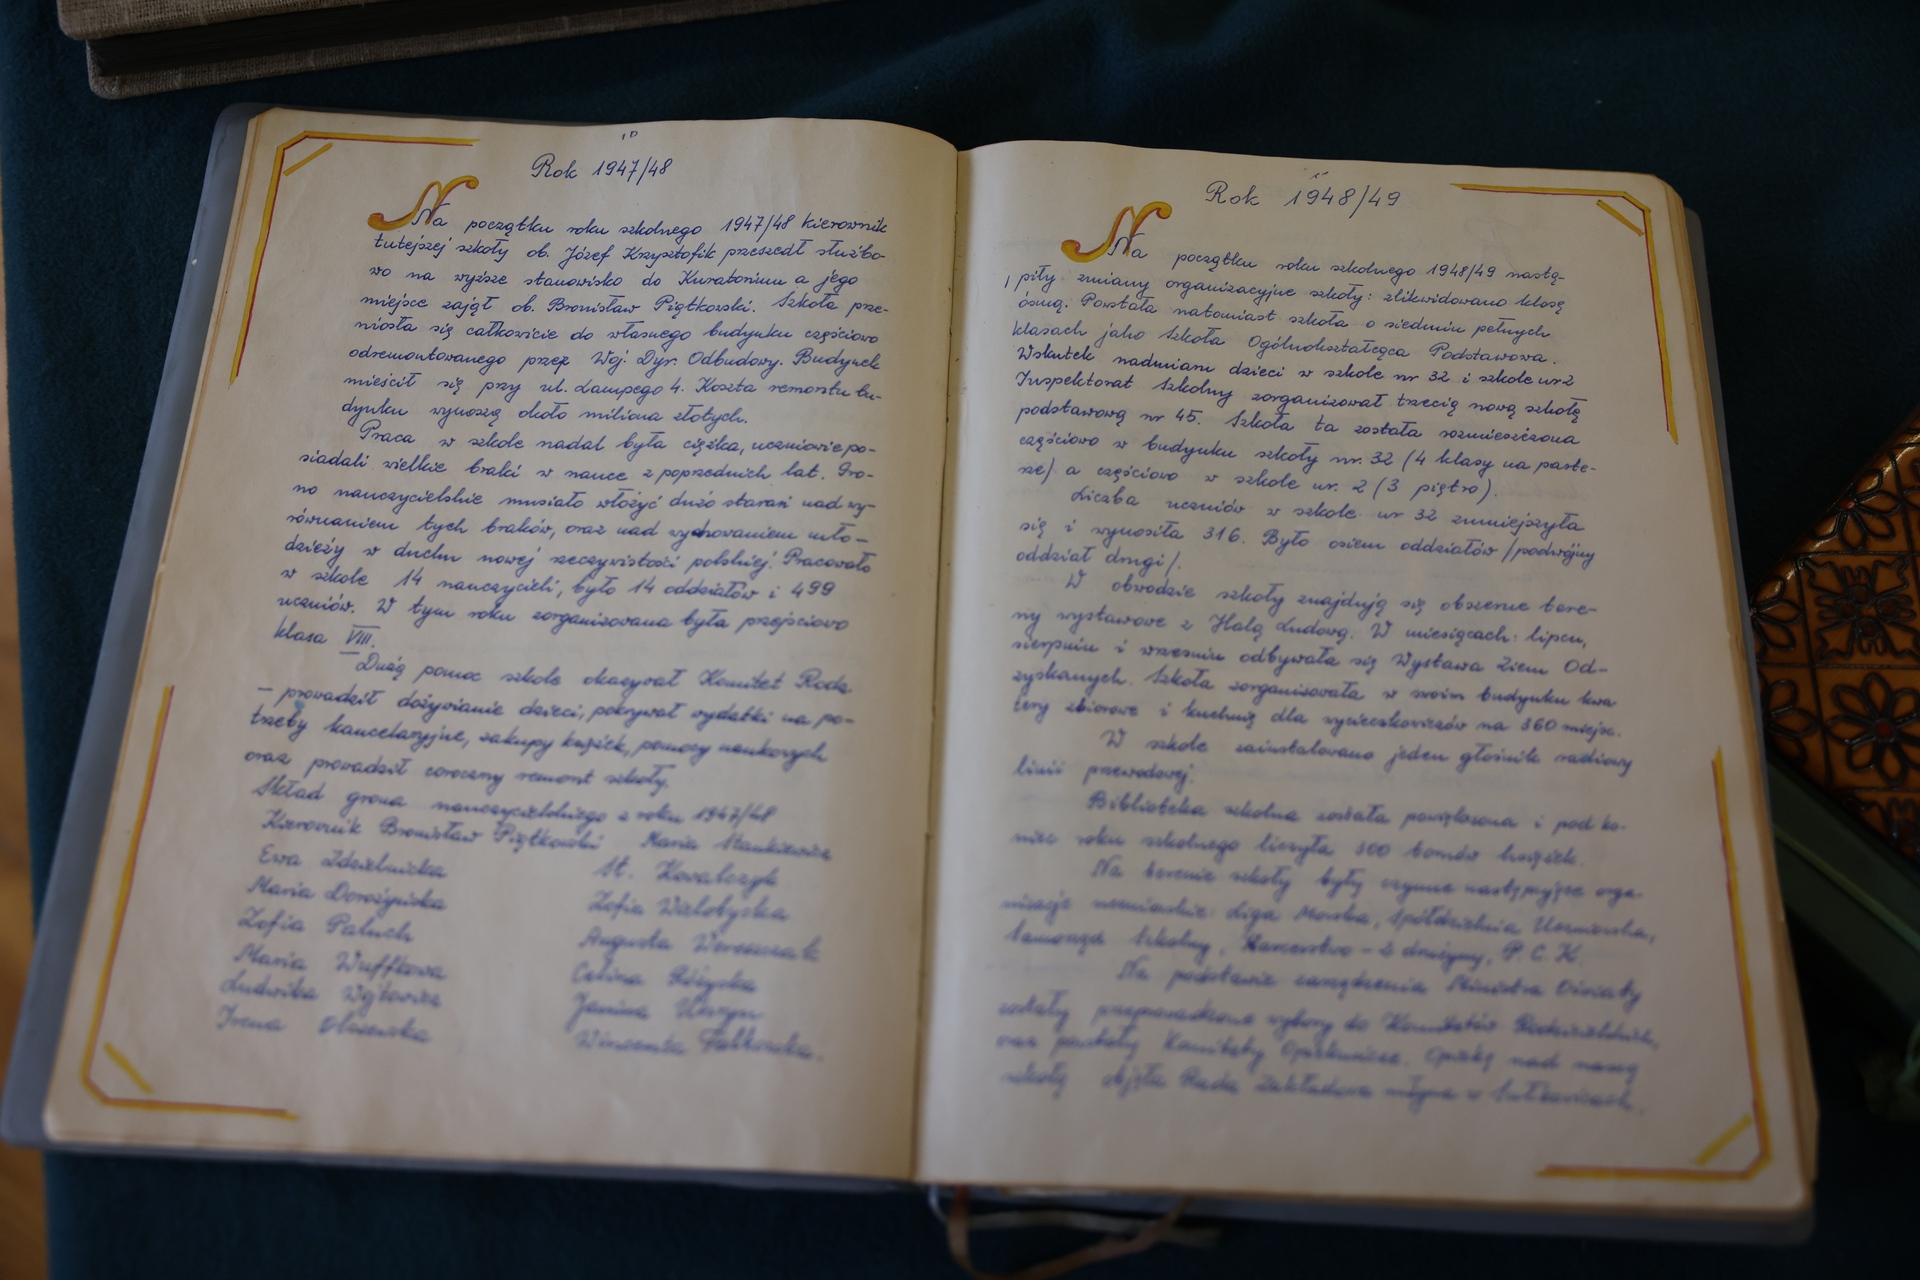 10
Rok 1947/48
Na początku roku szkolnego 1947/48 kierownik
tutejszej szkoły ob. Józef Krzysztofik przeszedł służbo-
wo na wyższe stanowisko do Kuratorium a jego
miejsce zajął ob. Bronisław Piątkowski. Szkoła prze-
niosła się całkowicie do własnego budynku częściowo
odremontowanego przez Woj. Dyr. Odbudowy. Budynek
mieścił się przy ul. Lampego 4. Koszta remontu bu-
dynku wynoszą około miliona złotych.
Praca w szkole nadal była ciężka, uczniowie po-
siadali wielkie braki w nauce z poprzednich lat. Gro-
no nauczycielskie musiało włożyć dużo starań nad wy-
równaniem tych braków, oraz nad wychowaniem mło-
dzieży w duchu nowej rzeczywistości polskiej. Pracowało
w szkole 14 nauczycieli, było 14 oddziałów i 499
uczniów. W tym roku zorganizowana była przejściowo
klasa VIII.
Dużą pomoc szkole okazywał Komitet Rodz.
- prowadził dożywianie dzieci, pokrywał wydatki na po-
trzeby kancelaryjne, zakupy książek, pomocy naukowych
oraz prowadził coroczny remont szkoły.
Skład grona nauczycielskiego z roku 1947/48
Kierownik Bronisław Piątkowski Maria Stankiewicz
Ewa Zdzielnicka St. Kowalczyk
Maria Dorożyńska Zofia Wielobycka
Zofia Paluch Augusta Wereszczak
Maria Wuffkowa Celina Różycka
Ludwika Wójtowicz Janina
Irena Olszewska Wincenta Falkowska.
11
Rok 1948/49
Na początku roku szkolnego 1948/49 nastą-
piły zmiany organizacyjne szkoły: zlikwidowano klasę
ósmą. Powstała natomiast szkoła o siedmiu pełnych
klasach jako Szkoła Ogólnokształcąca Podstawowa.
Wskutek nadmiaru dzieci w szkole nr 32 i szkole nr 2
Inspektorat Szkolny zorganizował trzecią nową szkołę
podstawową nr 45. Szkoła ta została rozmieszczona
częściowo w budynku szkoły nr. 32 (4 klasy na parte-
rze) a częściowo w szkole nr. 2 (3 piętro).
Liczba uczniów w szkole nr 32 zmniejszyła
się i wynosiła 316. Było osiem oddziałów /podwójny
oddział drugi/.
W obwodzie szkoły znajdują się obszerne tere-
ny wystawowe z Halą Ludową. W miesiącach: lipcu,
sierpniu i wrześniu odbywała się Wystawa Ziem Od-
zyskanych. Szkoła zorganizowała w swoim budynku kwa
tery zbiorowe i kuchnię dla wycieczkowiczów na 360 miejsc.
W szkole zainstalowano jeden głośnik radiowy
linii przewodowej.
Biblioteka szkolna została powiększona i pod ko-
niec roku szkolnego liczyła 300 tomów książek.
Na terenie szkoły były czynne następujące orga-
nizacje uczniowskie: Liga Morska, Spółdzielnia Uczniowska,
Samorząd Szkolny, Harcerstwo - 2 drużyny, P.C.K.
Na podstawie zarządzenia Ministra Oświaty
zostały przeprowadzone wybory do Komitetów Rodzicielskich,
oraz powstały Komitety Opiekuńcze. Opiekę nad naszą
szkołą objęła Rada Zakładowa w